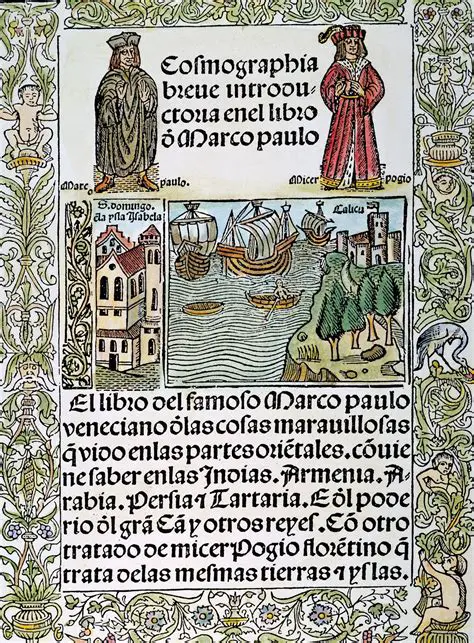 Cosmographia
breue introdu-
ctoria enel libro
đ Marco paulo
Marc paulo.
Micer Pogio
S. domingo.
ẽla ysla Isabela
Calicu
El libro del famoso Marco paulo
veneciano đlas cosas marauillosas
q̃ vido enlas partes oriẽtales. cõuie
ne saber enlas Indias. Armenia. A-
rabia. Persia ⁊ Tartaria. E đl pode
rio đl grã Cã y otros reyes. Cõ otro
tratado de micer Pogio florẽtino q̃
trata delas mesmas tierras ⁊ yslas.